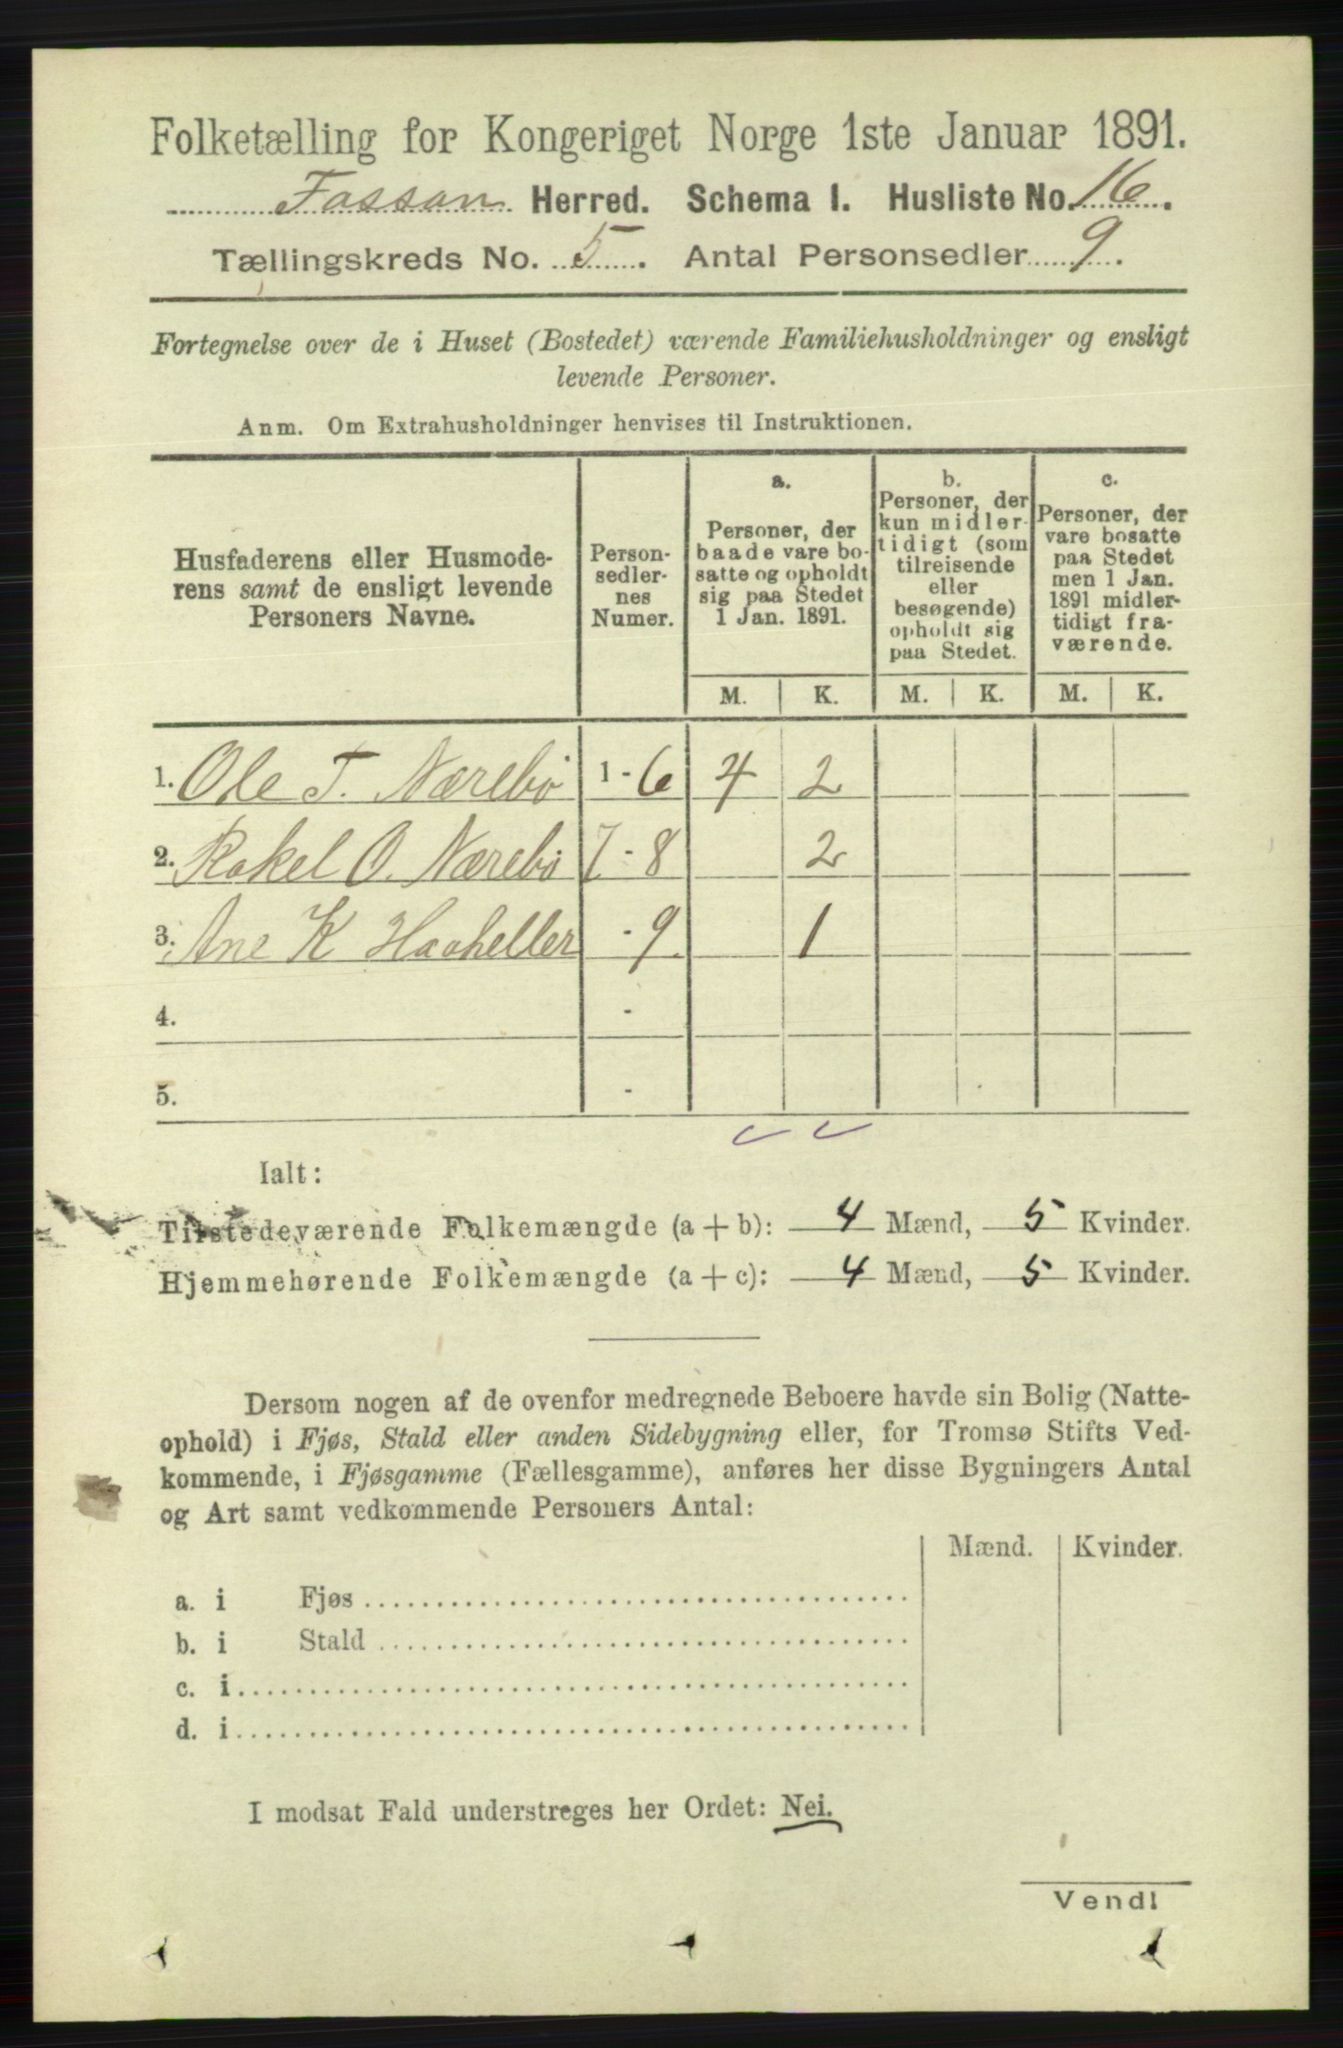 Folketælling for Kongeriget Norge 1ste Januar 1891.
Fossan Herred. Schema I. Husliste No. 16.
Tællingskreds No. 5. Antal Personsedler 9.
Fortegnelse over de i Huset (Bostedet) værende Familiehusholdninger og ensligt
levende Personer.
Anm. Om Extrahusholdninger henvises til Instruktionen.
Husfaderens eller Husmode-
rens samt de ensligt levende
Personers Navne.
Person-
sedler-
nes
Numer.
a.
Personer, der
baade vare bo-
satte og opholdt
sig paa Stedet
1 Jan. 1891.
b.
Personer, der
kun midler-
tidigt (som
tilreisende
eller
besøgende)
opholdt sig
paa Stedet.
c.
Personer, der
vare bosatte
paa Stedet
men 1 Jan.
1891 midler-
tidigt fra-
værende.
M. K. M. K. M. K.
1. Ole T. Nærebø 1 - 6 4 2
2. Rakel O. Nærebø 7 - 8 2
3. Ane K Haaheller - 9. 1
4. -
5. -
Ialt:
Tilstedeværende Folkemængde (a + b): 4 Mænd, 5 Kvinder.
Hjemmehørende Folkemængde (a + c): 4 Mænd, 5 Kvinder.
Dersom nogen af de ovenfor medregnede Beboere havde sin Bolig (Natte-
ophold) i Fjøs, Stald eller anden Sidebygning eller, for Tromsø Stifts Ved-
kommende, i Fjøsgamme (Fællesgamme), anføres her disse Bygningers Antal
og Art samt vedkommende Personers Antal:
Mænd. Kvinder.
a. i Fjøs
b. i Stald
c. i
d. i
I modsat Fald understreges her Ordet: Nei.
Vend!